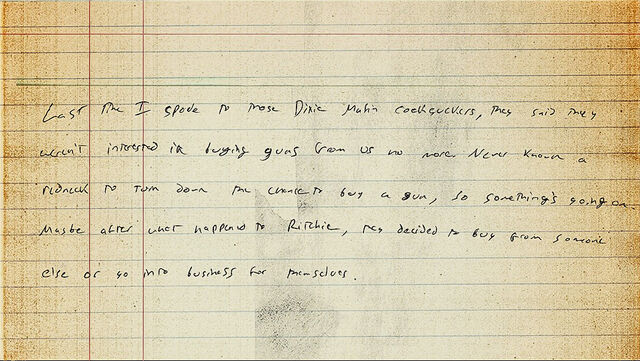 Last time I spoke to those Dixie Mafia cocksuckers, they said they
weren't interested in buying guns from us no more. Never known a
redneck to turn down the chance to buy a gun, so something's going on.
Maybe after what happened to Ritchie, they decided to buy from someone
else or go into business for themselves.